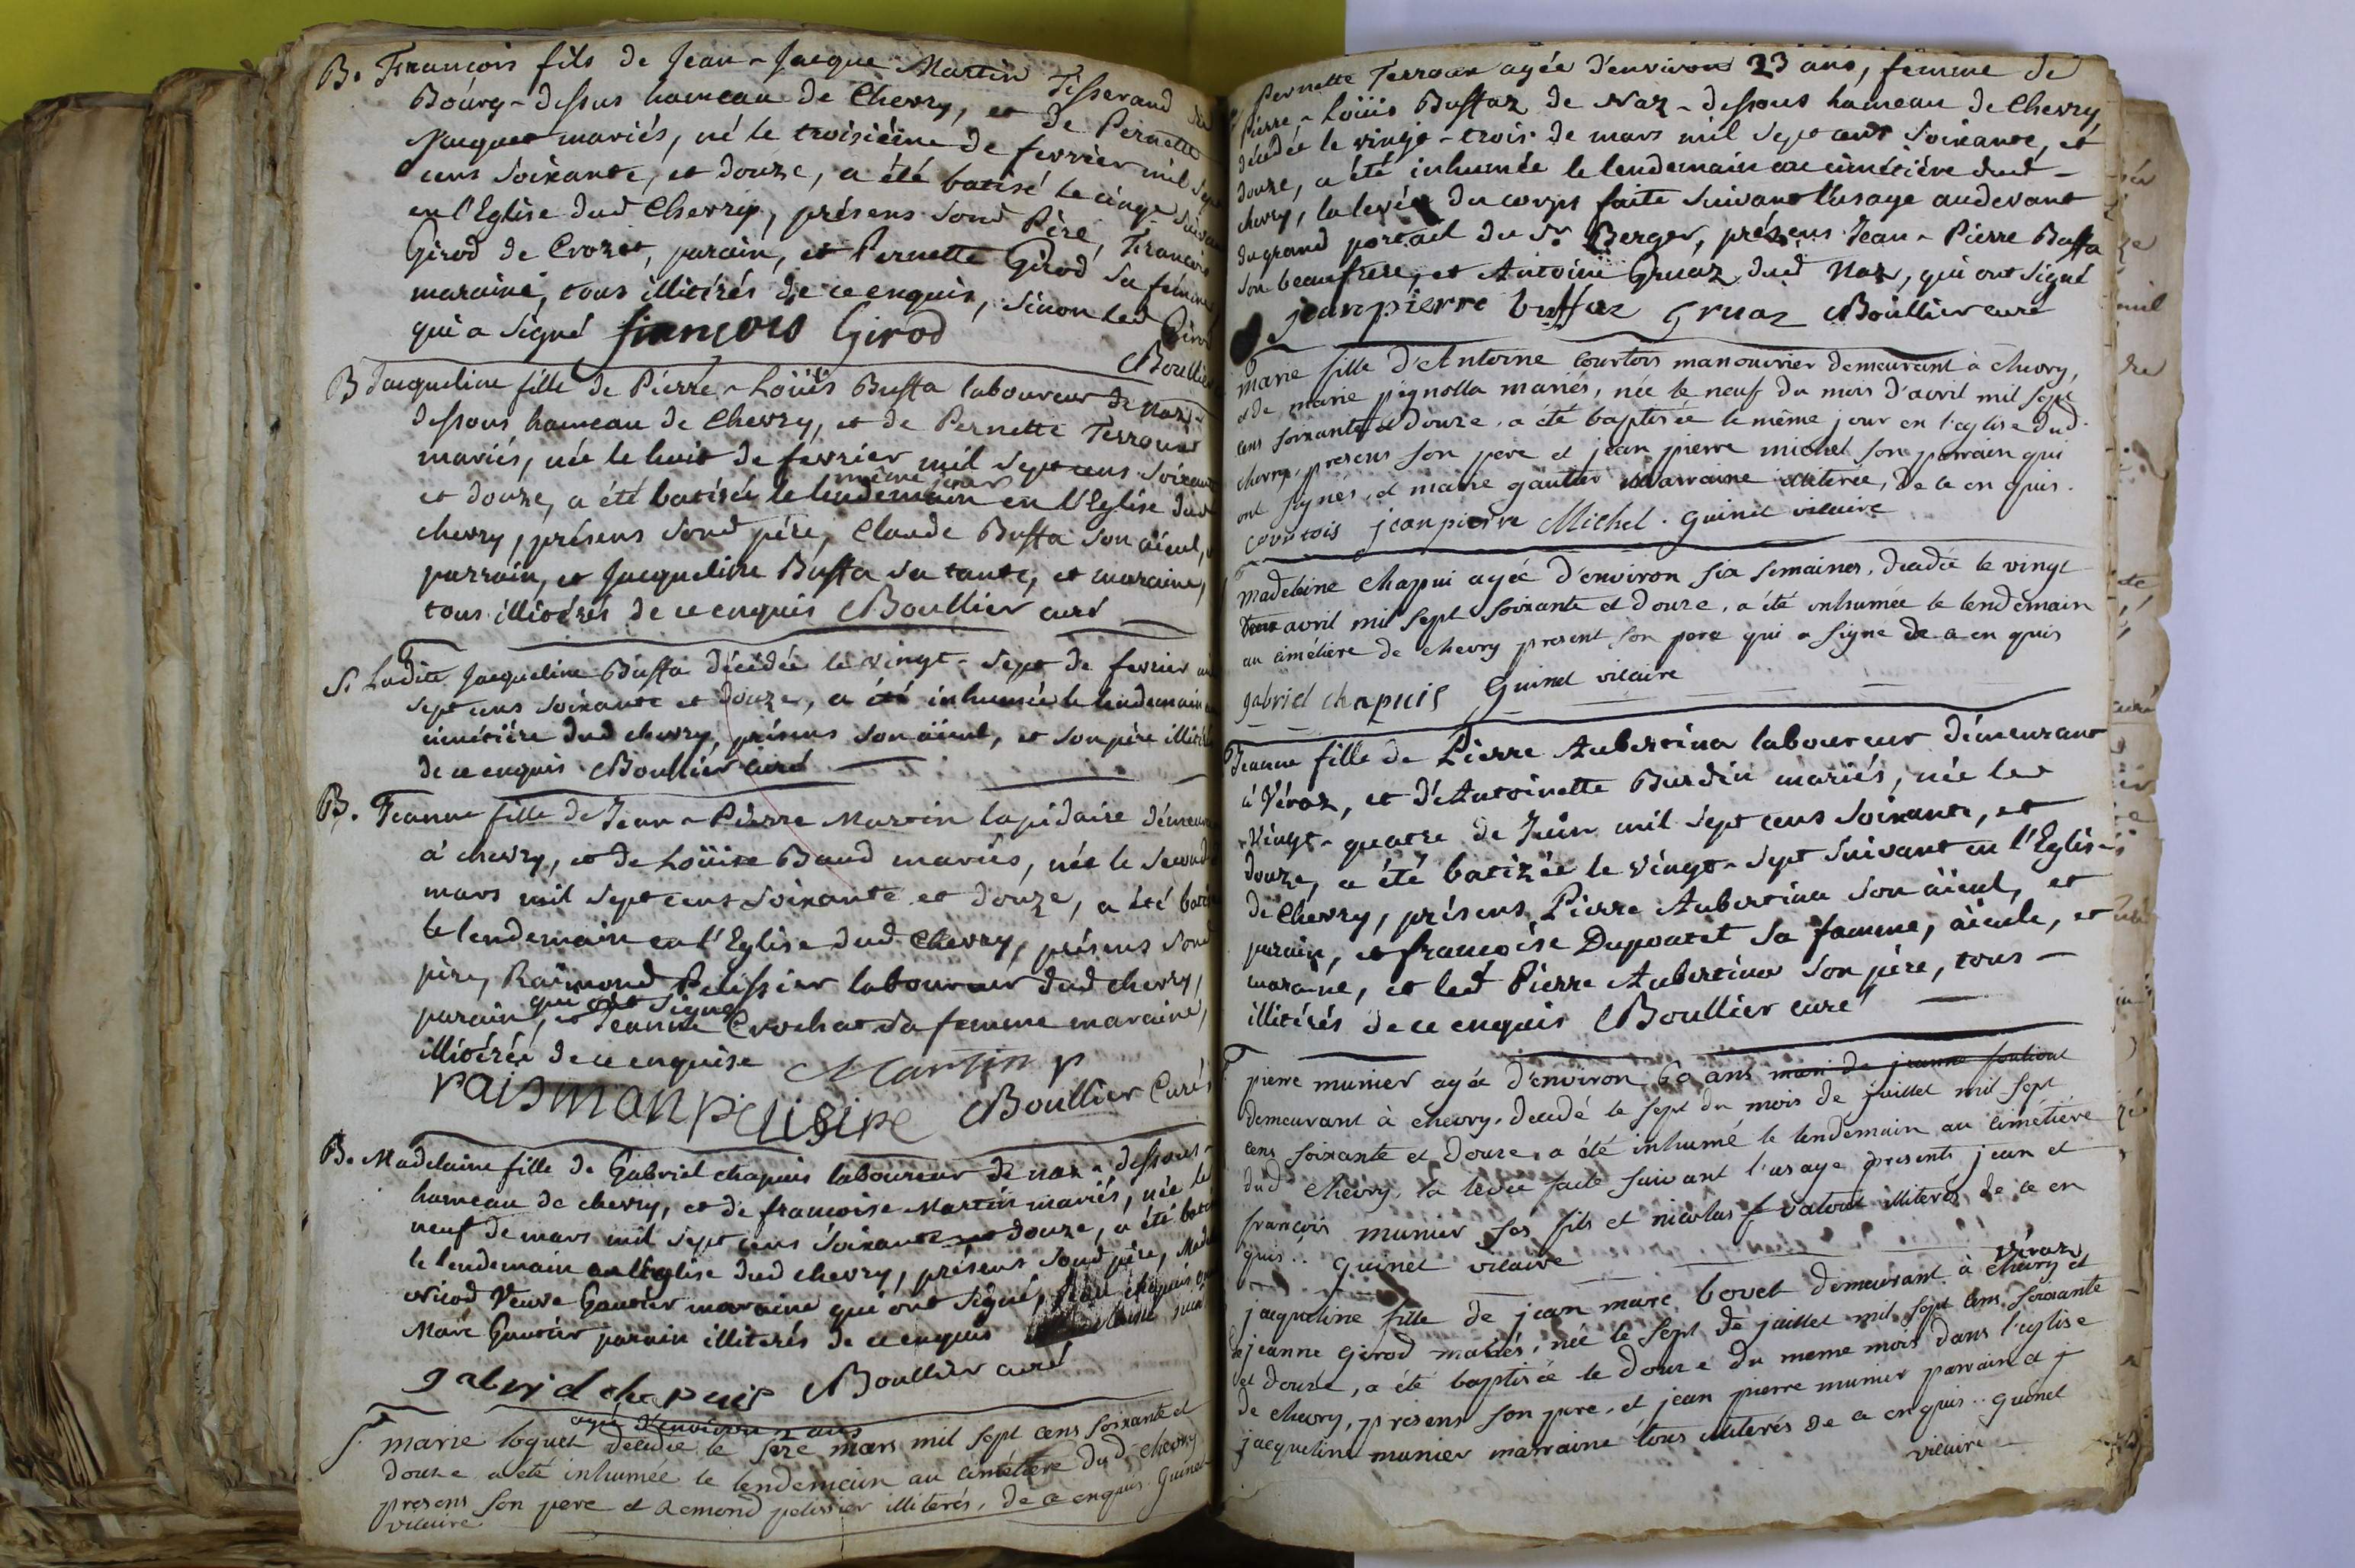 B. François fils de Jean-Jacque Martin Tisserand de
Bourg-dessus hameau de Chevry, et de Pernette
Jacquet mariés, né le troisiéme de fevrier mil sept
cens soixante, et douze, a été batisé le cinq suivant
en l'Eglise dud Chevry, présens sond Pére, François
Girod de Crozet, parain, et Pernette Girod sa femme
maraine, tous illitérés de ce enquis, sinon led Girod
qui a signé françois Girod
Boullier
B Jacqueline fille de Pierre-Loüis Buffa laboureur de Naz-
dessous hameau de Chevry, et de Pernette Terroux
mariés, née le huit de fevrier mil sept cens soixante
même jour
et douze, a été batisée le lendemain en l'Eglise dud
chevry, présens sond pére, Claude Buffa son aïeul,
parrain, et Jacqueline Buffa sa tante, et maraine,
tous illitérés de ce enquis Boullier curé
S. Ladite Jacqueline Buffa décédée le vingt-sept de fevrier mil
sept cens soixante et douze, a été inhumée le lendemain au
cimétiére dud chevry, présens son aïeul, et son père illitérés
de ce enquis Boullier curé
B. Jeanne fille de Jean-Pierre Martin lapidaire démeurant
à chevry, et de Loüise Baud mariés, née le second
mars mil sept cens soixante et douze, a été batisée
le lendemain en l'Eglise dud Chevry, présens sond
pére, Raimond Pelissier laboureur dud chevry,
qui ont signé
parain, et Jeanne Crochat sa femme maraine,
illitérée de ce enquise Martin p
raismon pelisire Boullier Curé
B. Madelaine fille de Gabriel chapuis laboureur de naz-dessous
hameau de chevry, et de françoise Martin mariés, née le
neuf de mars mil sept cens soixante et douze, a été batisée
le lendemain en l'Eglise dud chevry, présens sond pére,
Nicod Veuve Gautier maraine qui ont signé,
Marc Gautier parain illiterés de ce enquis
gabriel chapuis Boullier curé
agée d'environ 2 ans
S. marie loquet decedée le seze mars mil sept cens soixante et
douze a été inhumée le lendemain au cimétiere dud chevry
presens son pere et Remond pelissier illiterés, de ce enquis. Guinet
vicaire
Pernette Terroux agée d'environ 23 ans, femme de
Pierre-Loüis Buffaz de Naz-dessous hameau de Chevry,
décédée le vingt-trois de mars mil sept cens soixante, et
douze, a été inhumée le lendemain au cimétiére dud-
chevry, la levée du corps faite suivant l'usage audevant
du grand portail du Sr Berger, présens Jean-Pierre Buffa
son beaufrere, et Antoine Gruaz dud Naz, qui ont signé
jean pierre buffaz Gruaz Boullier curé
marie fille d'Antoine Courtois manouvrier demeurant à chevry,
et de marie pignolla mariés, née le neuf du mois d'avril mil sept
cens soixante et douze, a été baptisée le même jour en l'eglise dud.
chevry, presens son pere et jean pierre michel son parrain qui
ont signés, et marie gautier marraine illiterée, de ce en quis.
courtois jean pierre Michel. Guinet vicaire
madeleine chappui agée d'environ six semaines, decedée le vingt
avril mil sept soixante et douze, a été inhumée le lendemain
au cimétiere de chevry present son pere qui a signé de ce en quis
gabriel chapuis Guinet vicaire
Jeanne fille de Pierre Aubertina laboureur démeurant
à Véraz, et d'Antoinette Burdin mariés, née le
vingt-quatre de Juin mil sept cens soixante, et
douze, a été batizée le vingt-sept suivant en l'Eglise
de Chevry, présens Pierre Aubertina son aïeul, et
parain, et françoise Dupontet sa famme, aïeule, et
maraine, et led Pierre Aubertina son pére, tous
illitérés de ce enquis Boullier curé
pierre munier agée d'environ 60 ans mari de jeanne
demeurant à chevry, decedé le sept du mois de juillet mil sept
cens soixante et douze, a été inhumé le lendemain au cimétiére
dud chevry, la levée faite suivant l'usage presents jean et
françois munier ses fils et nicolas f valout illiterés de ce en
quis.. Guinet vicaire
véraz
jaqueline fille de jean marc bovet demeurant à chevry et
de jeanne Girod mariés, née le sept de juillet mil sept cens soixante
et douze, a été baptisée le douze du meme mois dans l'eglise
de chevry, presens son pere, et jean pierre munier parrain et
jacqueline munier marraine tous illiterés de ce en quis.. guinet
vicaire